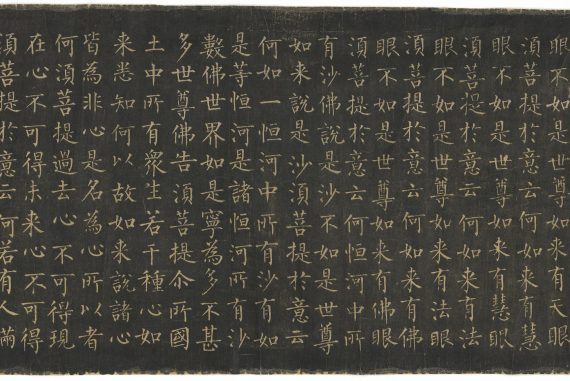 眼不如是世尊如來有天眼
須菩提於意云何如來有慧
眼不如是世尊如來有慧眼
須菩提於意云何如來有法
眼不如是世尊如來有法眼
須菩提於意云何如來有佛
眼不如是世尊如來有佛眼
須菩提於意云何恒河中所
有沙佛說是沙不如是世尊
如來說是沙須菩提於意云
何如一恒河中所有沙有如
是等恒河是諸恒河所有沙
數佛世界如是寧為多不甚
多世尊佛告須菩提尒所國
土中所有衆生若干種心如
來悉知何以故如來說諸心
皆為非心是名為心所以者
何須菩提過去心不可得現
在心不可得未來心不可得
須菩提於意云何若有人滿